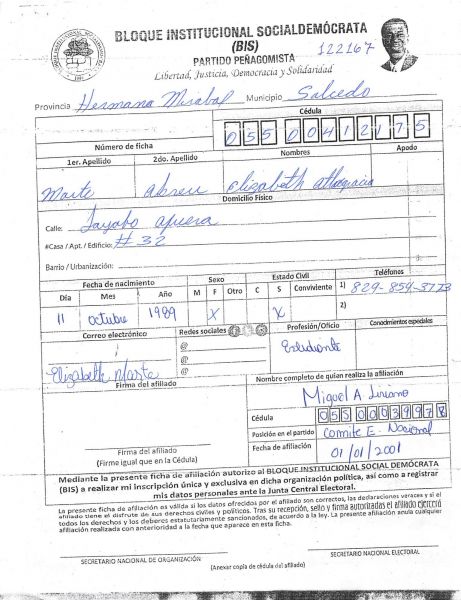 BLOQUE INSTITUCIONAL SOCIALDEMÓCRATA
(BIS)
122167
PARTIDO PEÑAGOMISTA
Libertad, Justicia, Democracia y Solidaridad
Provincia Hermana Mirabal Municipio Salcedo
Cédula
Número de ficha 055 0041217 5
1er. Apellido 2do. Apellido Nombres Apodo
Marte Abreu Elizabeth Altagracia
Domicilio Físico
Calle: Jayabo afuera
#Casa / Apt. / Edificio: # 32
Barrio / Urbanización:
Fecha de nacimiento Sexo Estado Civil Teléfonos
Día Mes Año M F Otro C S Conviviente 1) 829-854-3773
11 octubre 1989 X X 2)
Correo electrónico Redes sociales Profesión/Oficio Conocimientos especiales
@ Estudiante
@
@
Elizabeth Marte
Firma del afiliado
Nombre completo de quien realiza la afiliación
Miguel A Liriano
Cédula 055 0003997 8
Posición en el partido Comite E. Nacional
Fecha de afiliación 01/01/2001
Firma del afiliado
(Firme igual que en la Cédula)
Mediante la presente ficha de afiliación autorizo al BLOQUE INSTITUCIONAL SOCIAL DEMÓCRATA
(BIS) a realizar mi inscripción única y exclusiva en dicha organización política, así como a registrar
mis datos personales ante la Junta Central Electoral.
La presente ficha de afiliación es válida si los datos ofrecidos por el afiliado son correctos, las declaraciones veraces y si el
afiliado tiene el disfrute de sus derechos civiles y políticos. Tras su recepción, sello y firma autorizadas el afiliado ejercerá
todos los derechos y los deberes estatutariamente sancionados, de acuerdo a la ley. La presente afiliación anula cualquier
afiliación realizada con anterioridad a la fecha que aparece en esta ficha.
SECRETARIO NACIONAL DE ORGANIZACIÓN SECRETARIO NACIONAL ELECTORAL
(Anexar copia de cédula del afiliado)